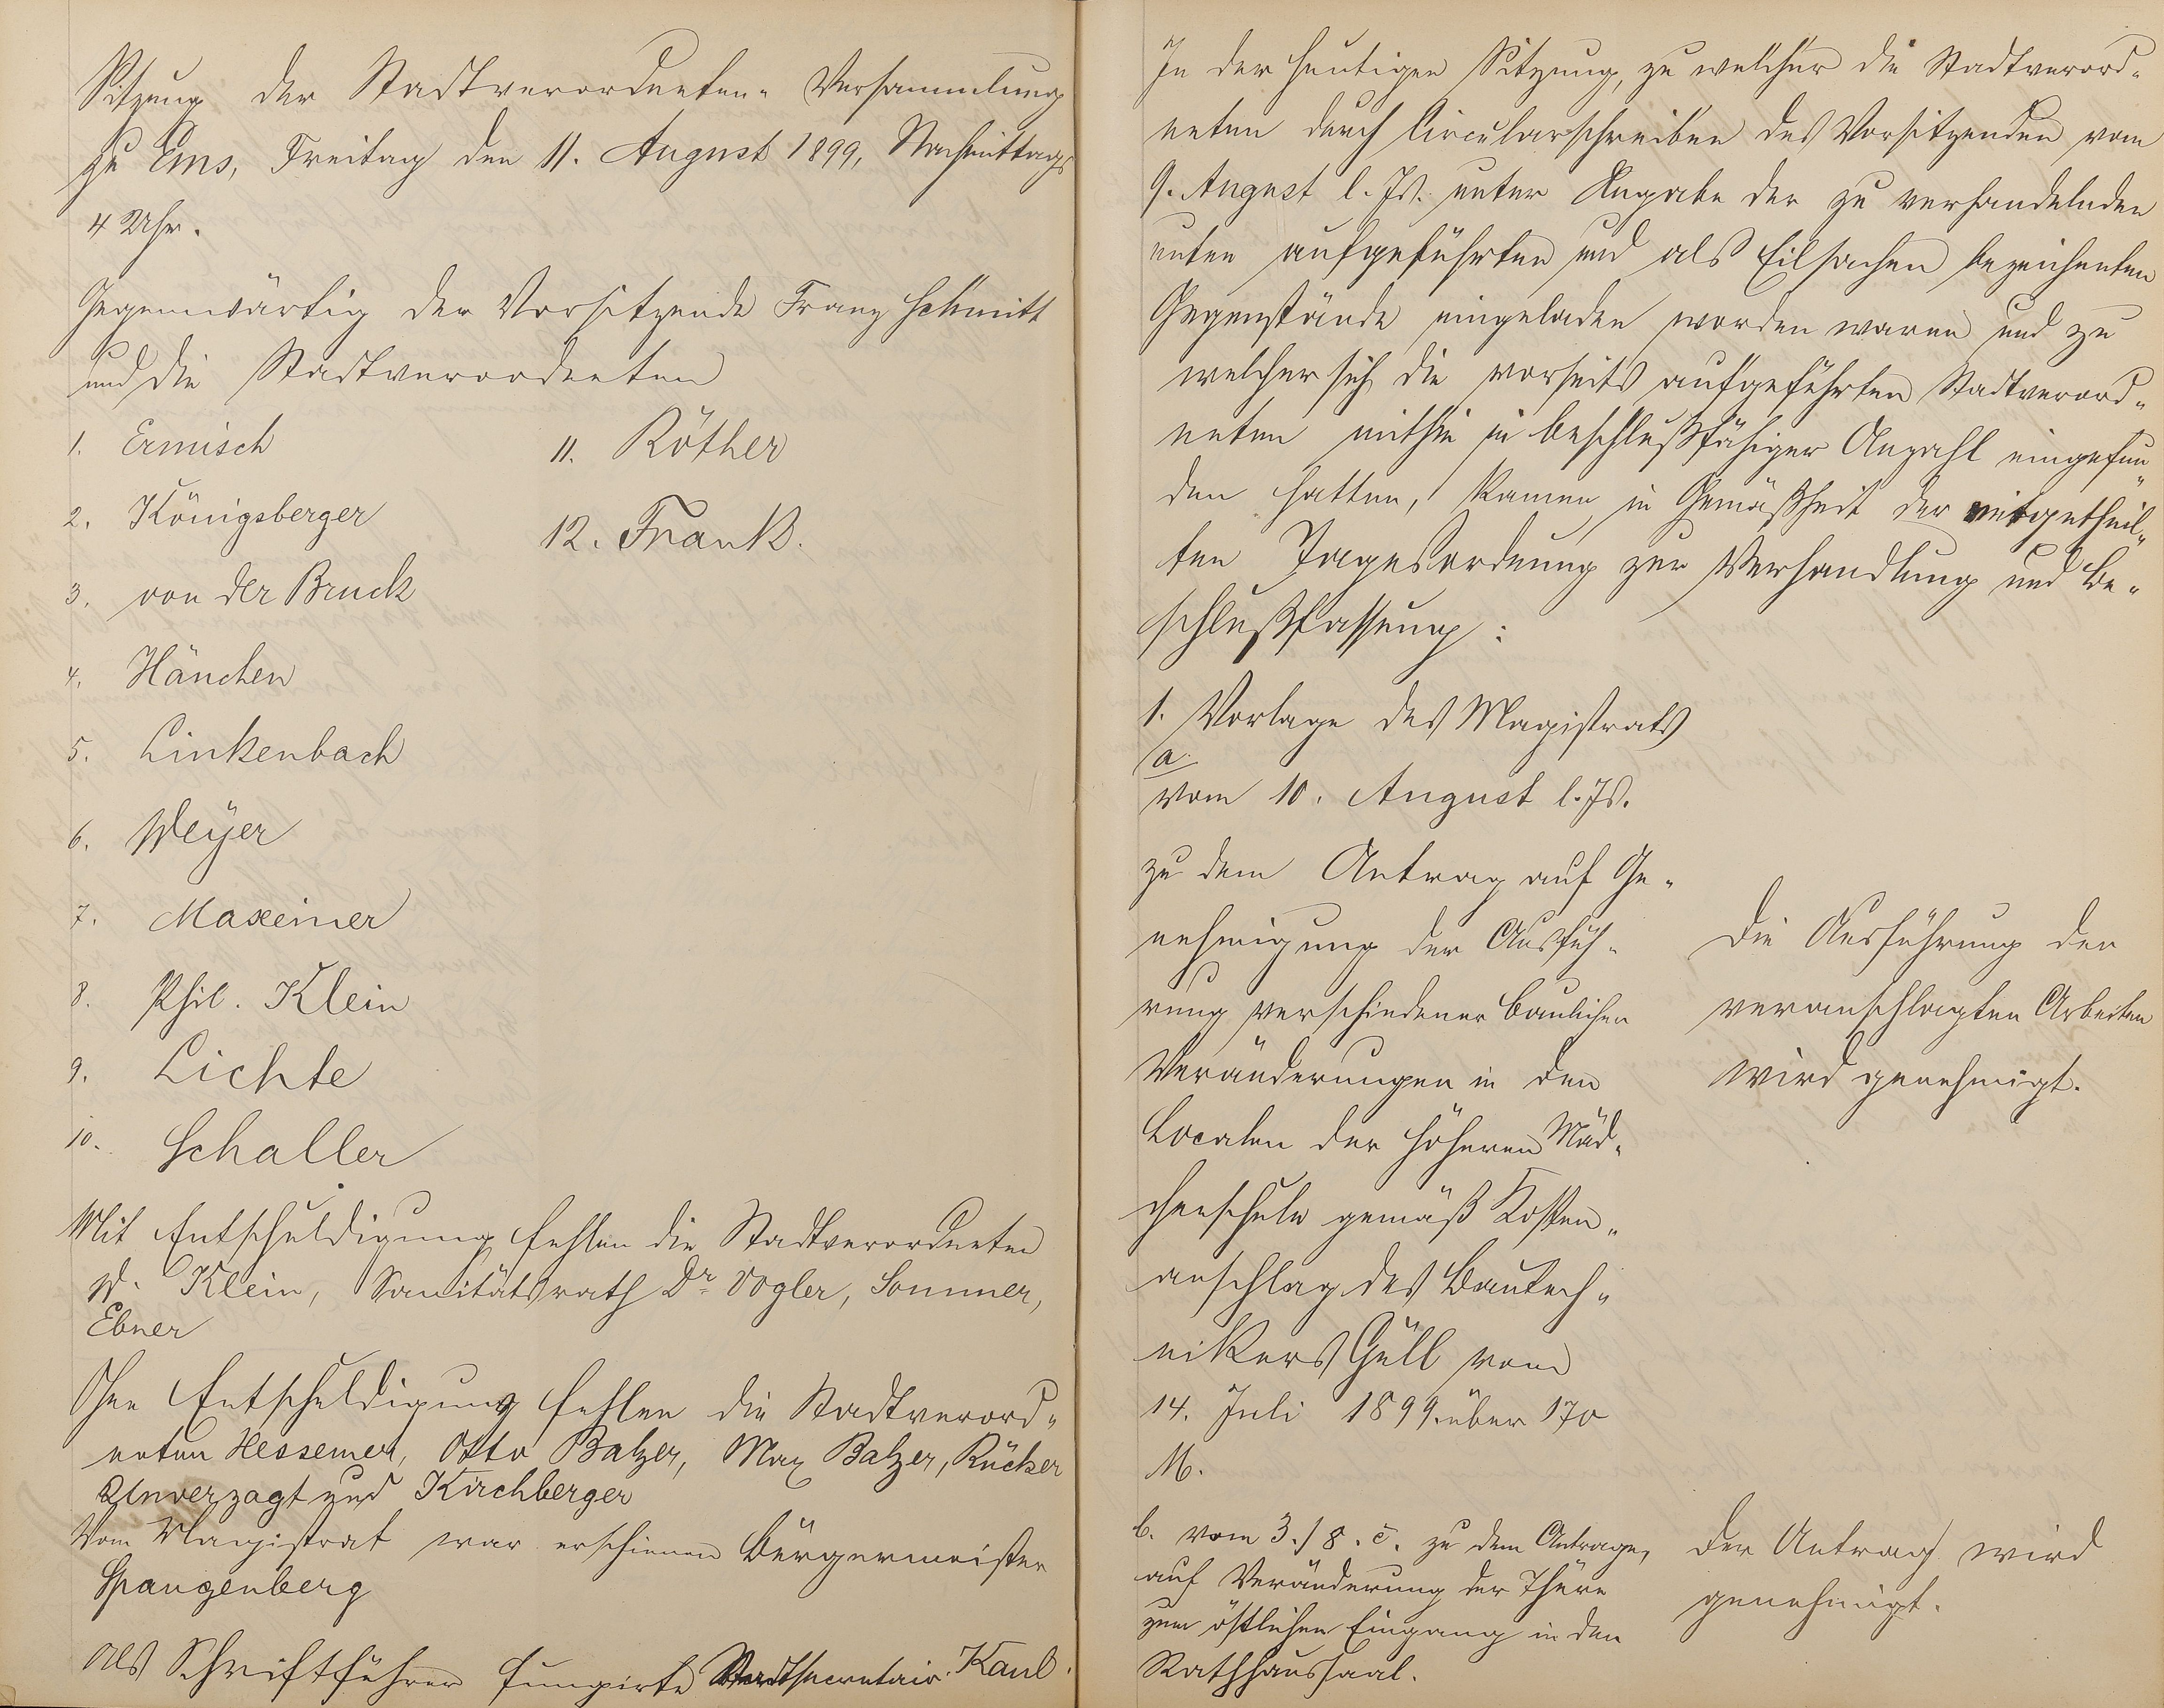 Sitzung der Stadtverordneten-Versammlung
zu Ems, Freitag den 11. August 1899, Nachmittags
4 Uhr.
Gegenwärtig der Vorsitzende Franz Schmitt
und die Stadtverordneten
1. Ermisch
2. Königsberger
3. von der Bruck
4. Hänchen
5. Linkenbach
6. Weyer
7. Maxeiner
8. Phil. Klein
9. Lichte
10. Schaller
11. Röther
12. Frank.
Mit Entschuldigung fehlen die Stadtverordneten
W. Klein, Sanitätsrath Dr Vogler, Sommer,
Ebner
Ohne Entschuldigung fehlen die Stadtverord-
neten Hessemer, Otto Balzer, Max Balzer, Rücker
Unverzagt und Kirchberger
Vom Magistrat war erschienen Bürgermeister
Spangenberg
Als Schriftführer fungirte Stadtsecretair Kaul.
In der heutigen Sitzung, zu welcher die Stadtverord-
neten durch Circularschreiben des Vorsitzenden vom
9. August l. Js. unter Angabe der zu verhandelnden
unten aufgeführten und als Eilsachen bezeichneten
Gegenstände eingeladen worden waren und zu
welcher sich die vorseits aufgeführten Stadtverord-
neten mithin in beschlußfähiger Anzahl eingefun-
den hatten, kamen in Gemäßheit der mitgetheil-
ten Tagesordnung zur Verhandlung und Be-
schlußfassung:
1. Vorlage des Magistrats
a.
vom 10. August l. Js.
zu dem Antrag auf Ge-
nehmigung der Ausfüh-
rung verschiedener baulicher
Veränderungen in den
Localen der höheren Mäd-
chenschule gemäß Kosten-
anschlag des Bautech-
nikers Güll vom
14. Juli 1899 über 170
M.
Die Ausführung der
veranschlagten Arbeiten
wird genehmigt.
b. vom 3./8. c. zu dem Antrage,
auf Veränderung der Thüre
zum östlichen Eingang in den
Rathhaussaal.
Der Antrag wird
genehmigt.